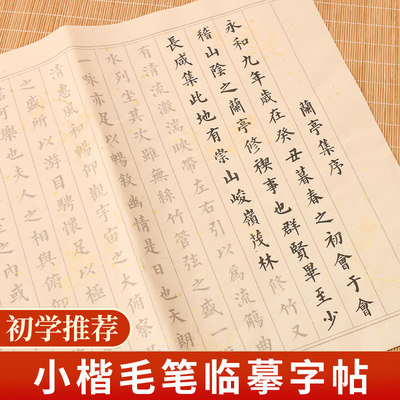 蘭亭集序
永和九年歲在癸丑暮春之初會于會
稽山陰之蘭亭修禊事也群賢畢至少
長咸集此地有崇山峻嶺茂林修竹又
有清流激湍映帶左右引以爲流觴曲
水列坐其次雖無絲竹管弦之盛一
一咏亦足以暢敘幽情是日也天朗
清惠風和暢仰觀宇宙之大俯察
之盛所以游目騁懷足以極
可樂也夫人之相與俯仰
之內或
初学推荐
小楷毛笔临摹字帖